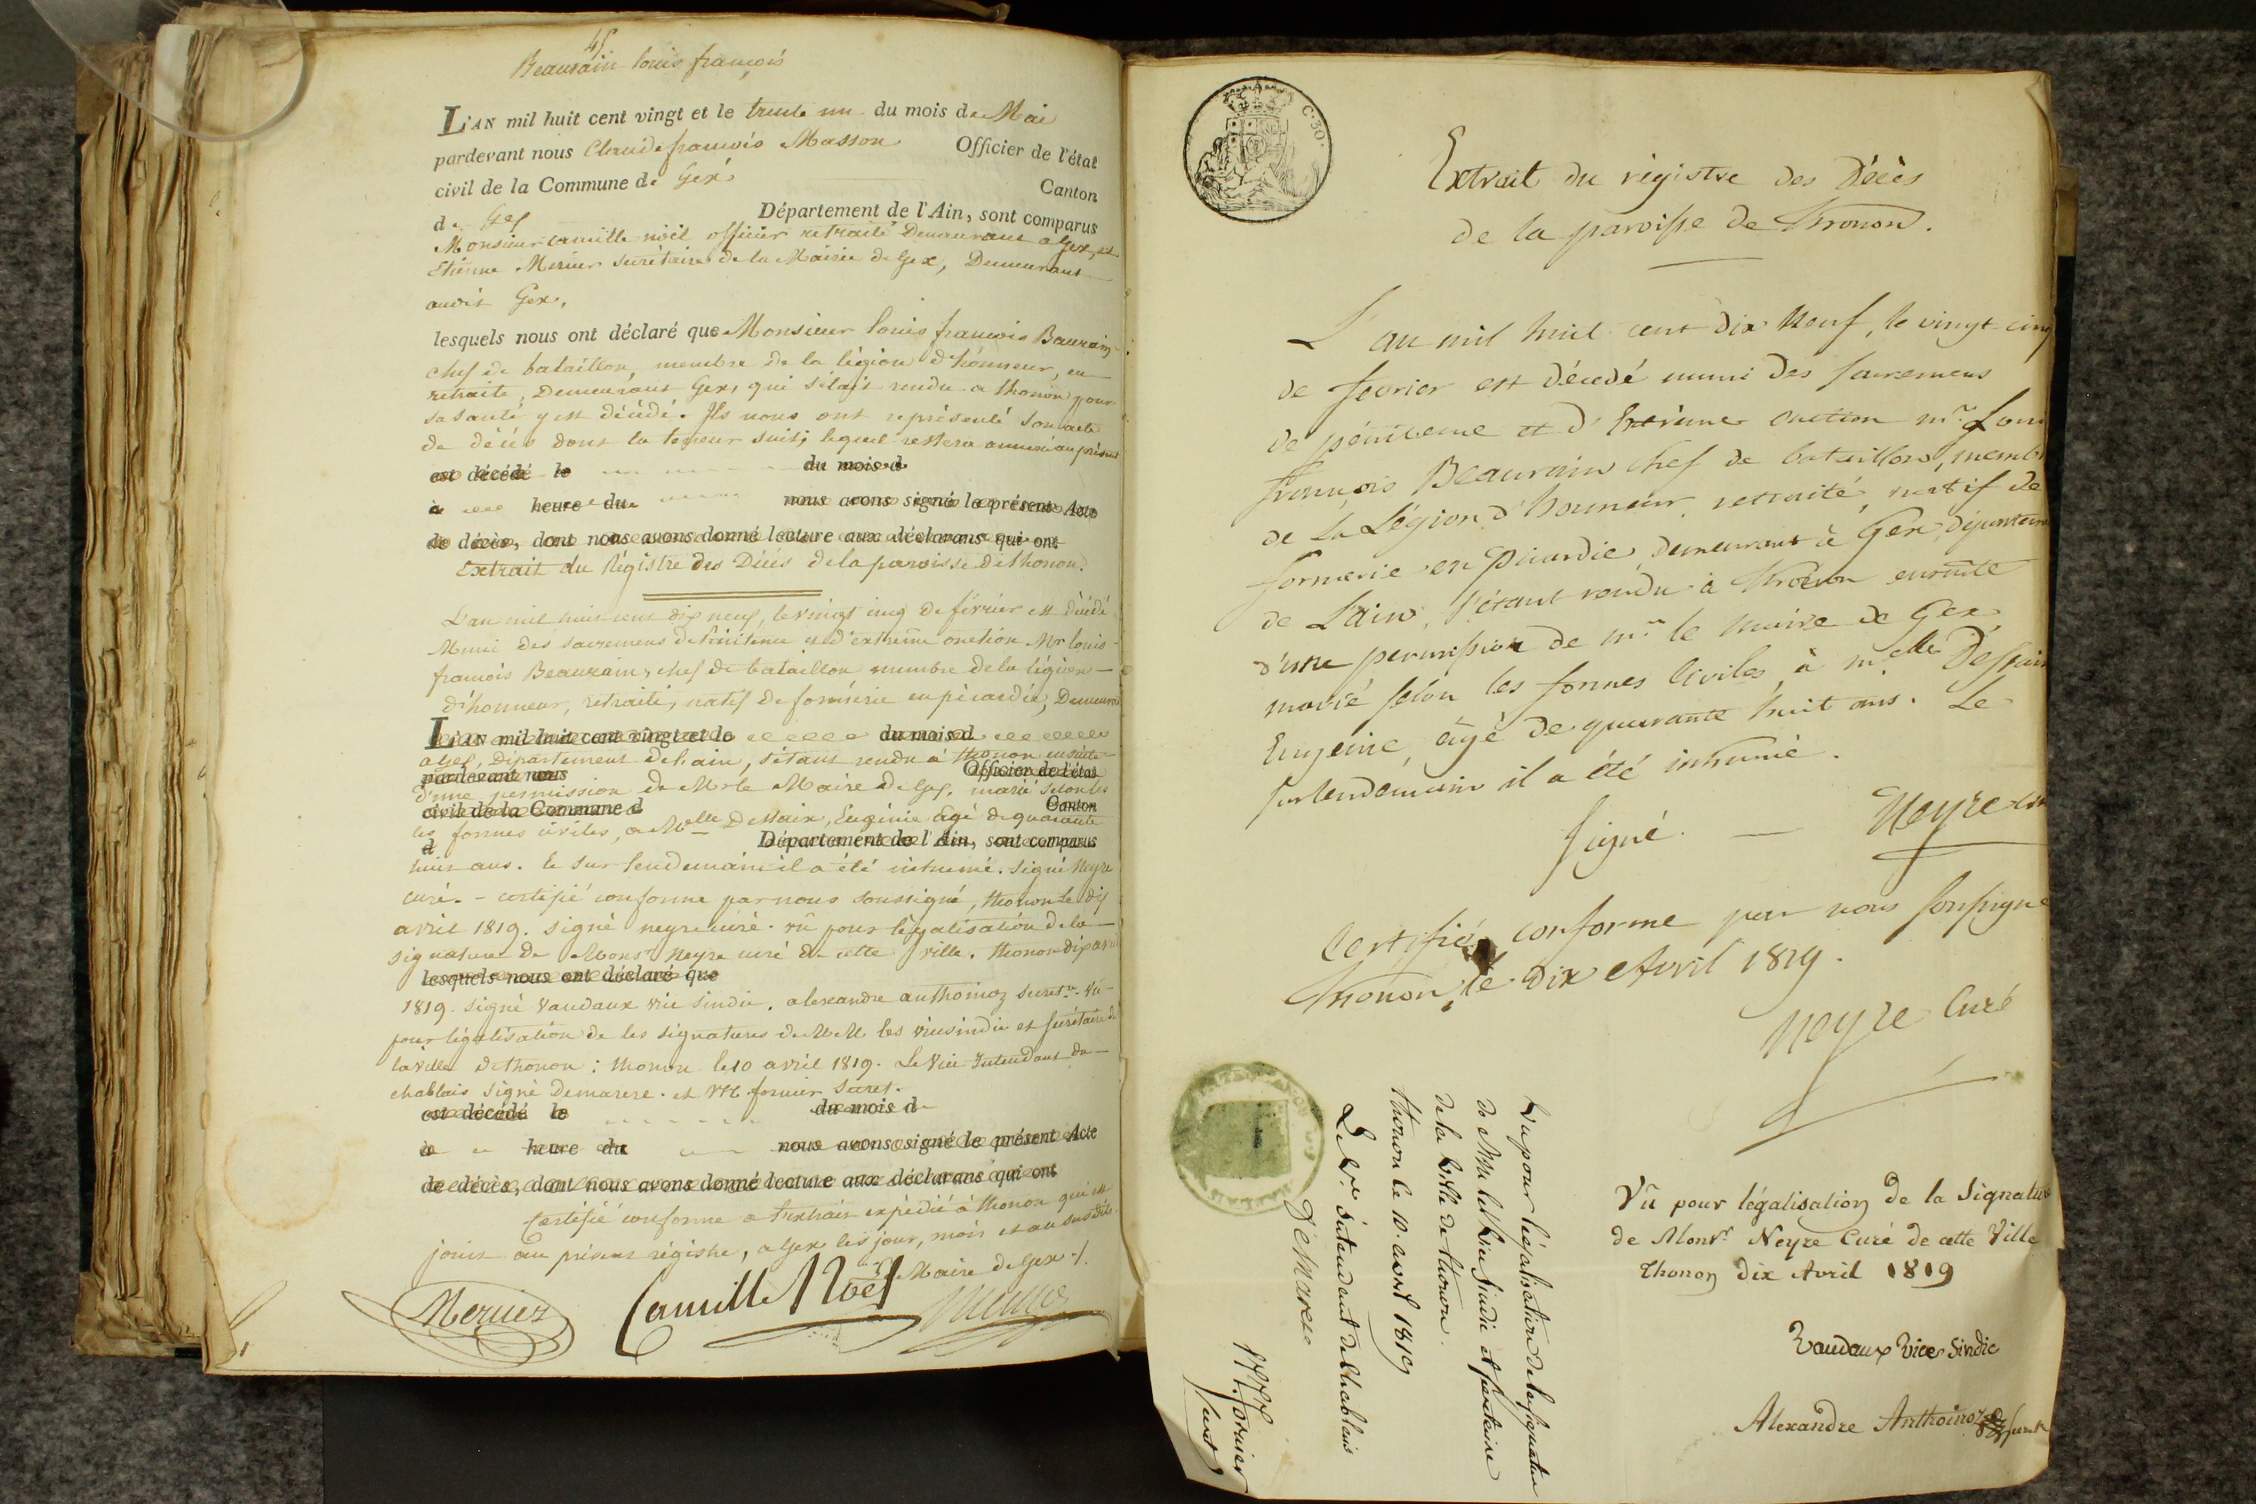 45
Beaurain louis françois
L'AN mil huit cent vingt et le trente un du mois de Mai
pardevant nous Claude françois Masson Officier de l'état
civil de la Commune de Gex Canton
de Gex Département de l'Ain, sont comparus
Monsieur camille noël officier retraité Demeurant a Gex, et
Etienne Mercier secrétaire de la Mairie de Gex, Demeurant
audit Gex.
lesquels nous ont déclaré que Monsieur louis francois Baurain
chef de bataillon, membre de la légion d'honneur, en
retraite, Demeurant Gex, qui s'était rendu a thonon pour
sa santé y est décédé. Ils nous ont représenté son acte
de décés dont la teneur suit; lequel restera annexé au présent
est décédé le du mois d
à heure du nous avons signé le présent Acte
de décès, dont nous avons donné lecture aux déclarans qui ont
Extrait du Régistre des Décés de la paroisse de thonon.
L'an mil huit cent dix neuf, le vingt cinq de février est décédé
Muni des sacremens de Pénitence et d'extrême onction Mr louis
françois Beaurain, chef de bataillon membre de la légion
d'honneur, retraité, natif de formerie en picardie, Demeurant
L'AN mil huit cent vingt et le du mois d
a Gex, Département de l'ain, s'étant rendu à thonon ensuite
pardevant nous Officier de l'état
d'une permission de Mr le Maire de Gex, marié selon les
civil de la Commune d Canton
les formes civiles, a Melle Eugénie agé de quarante
d Département de l'Ain, sont comparus
huit ans. le sur lendemain il a été inhumé. signé Neyre
curé. - certifié conforme par nous soussigné, thonon le dix
avril 1819. signé neyre curé. vû pour légalisation de la
signature de Monsr Neyre curé de cette ville. thonon dix avril
lesquels nous ont déclaré que
1819. signé Vaudaux vice sindic. alexandre anthoinoz secretre. Vû
pour légalisation de les signatures de MM les vice sindic et secrétaire de
la ville de thonon: thonon le 10 avril 1819. Le Vice Intendant du
chablais signé Demarere. et fornier secret.
est décédé le du mois d
à heure du nous avons signé le présent Acte
de décès, dont nous avons donné lecture aux déclarans qui ont
Certifié conforme a l'extrait expédié à thonon qui est
joint au présent régistre, a Gex les jour, mois et an susdits
Maire de Gex
Mercier Camille Noël
C. 30.
Extrait du régistre des Décès
de la paroisse de Thonon.
L'an mil huit cent dix neuf, le vingt cinq
de fevrier est décedé muni des sacremens
de pénitence et d'Extrème onction mr Loui
françois Beaurain chef de bataillon, memb
de la Légion d'honneur, retraité, natif de
formerie en Picardie, demeurant à Gex, département
de L'ain, s'étant rendu à Thonon ensuite
d'une permission de mr le maire de Gex
marié selon les formes Civiles à melle
Eugenie, âgé de quarante huit ans. Le
surlendemain il a été inhumé.
signé. — Neyre
Certifié conforme par nous soussigné
Thonon, le dix Avril 1819.
Neyre Curé
Vû pour légalisation de la Signature
de Monsr. Neyre Curé de cette Ville
Thonon dix Avril 1819
Vaudaux Vice Sindic
Alexandre Anthoinoz
Vu pour légalisation de la signature
de MM les Vice Sindic et secretaire
de la ville de thonon.
Thonon le 10. avril 1819
Le Vce intendant du Chablais
Demarere
Fornier